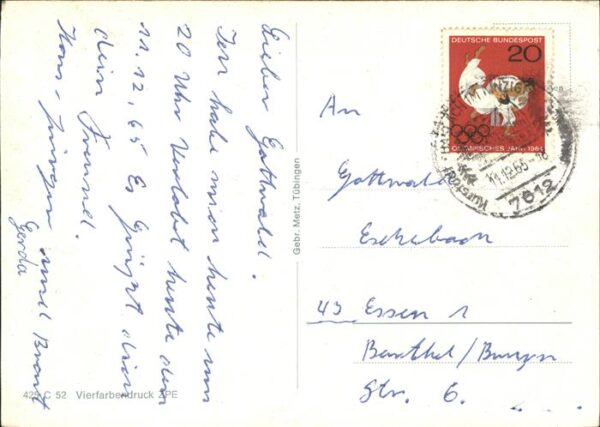 Lieber Gottwald.
Ich habe mich heute um
20 Uhr Verlobt heute den
11.12.65 Es Grüßt dich
dein Freund.
Hans-Jürgen und Braut
Gerda
425 C 52 Vierfarbendruck ZPE
Gebr. Metz, Tübingen
DEUTSCHE BUNDESPOST
20
OLYMPISCHES JAHR 1964
11.12.65-18
7612
An
Gottwald
Eschebach
43 Essen 1
Str. 6.